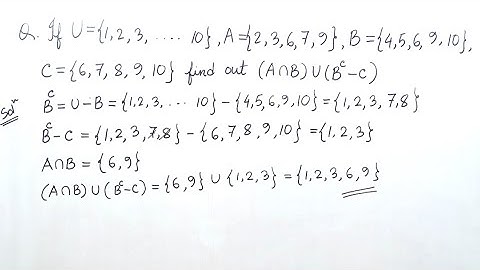 Q. If U={1,2,3, ..... 10}, A={2,3,6,7,9}, B={4,5,6,9,10},
C={6,7,8,9,10} find out (A∩B)∪(Bᶜ-C)
Solⁿ Bᶜ=U-B={1,2,3, ..... 10}-{4,5,6,9,10}={1,2,3,7,8}
Bᶜ-C={1,2,3,7,8}-{6,7,8,9,10}={1,2,3}
A∩B={6,9}
(A∩B)∪(Bᶜ-C)={6,9}∪{1,2,3}={1,2,3,6,9}